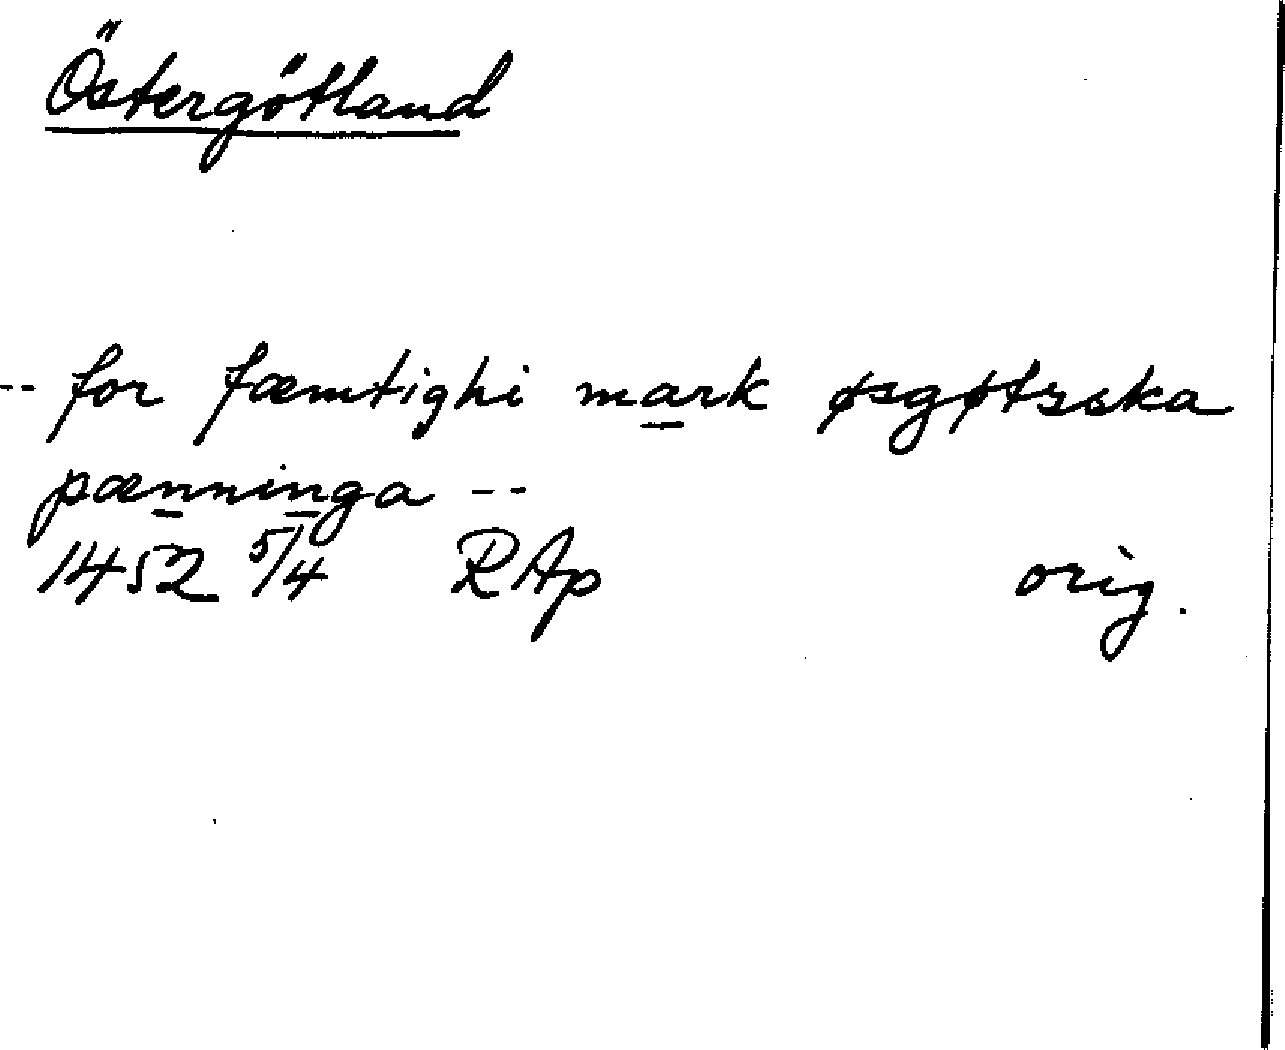 Östergötland
-- for fæmtighi mark øsgøtzska
pænninga --
1452 5/4 RAp orig.